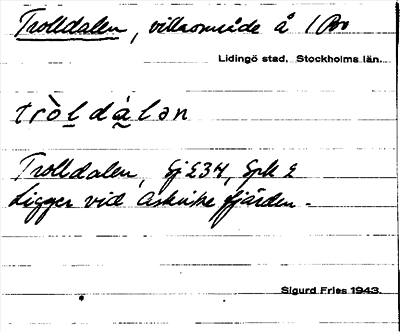 Trolldalen, villaområde å 1 Bo
Lidingö stad. Stockholms län.
tròldálən
Trolldalen, Ej 234, Spk 2
Ligger vid Askrike fjärden.
Sigurd Fries 1943.